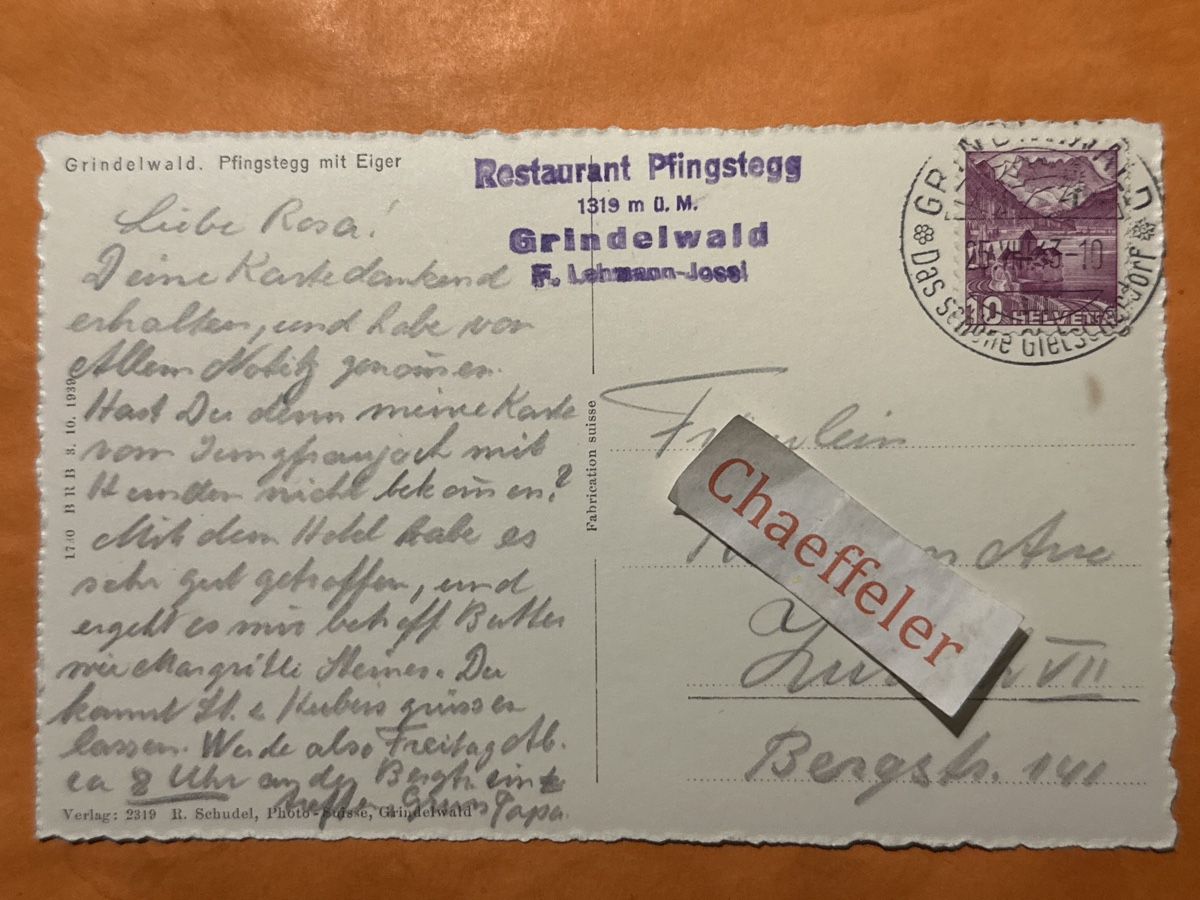 Grindelwald. Pfingstegg mit Eiger
Restaurant Pfingstegg
1319 m ü. M.
Grindelwald
F. Lehmann-Jossi
GRINDELWALD
25 VII 43-10
Das schöne Gletscherdorf
10 HELVETIA
Liebe Rosa!
Deine Karte dankend
erhalten, und habe von
Allem Notitz genom̄en.
Hast Du denn meine Karte
vom Jungfraujoch mit
Hunden nicht bekom̄en?
Mit dem Hotel habe es
sehr gut getroffen, und
ergeht es mir betreff Butter
wie Margritli Steiner. Du
kannst grüssen
lassen. Werde also Freitag Ab.
ca 8 Uhr an der Bergstr. ein
treffen. Gruss Papa.
1730 BRB 3. 10. 1939
Fabrication suisse
Verlag: 2319 R. Schudel, Photo-Suisse, Grindelwald
Fräulein
Chaeffeler
Aue
Zürich VII
Bergstr. 141